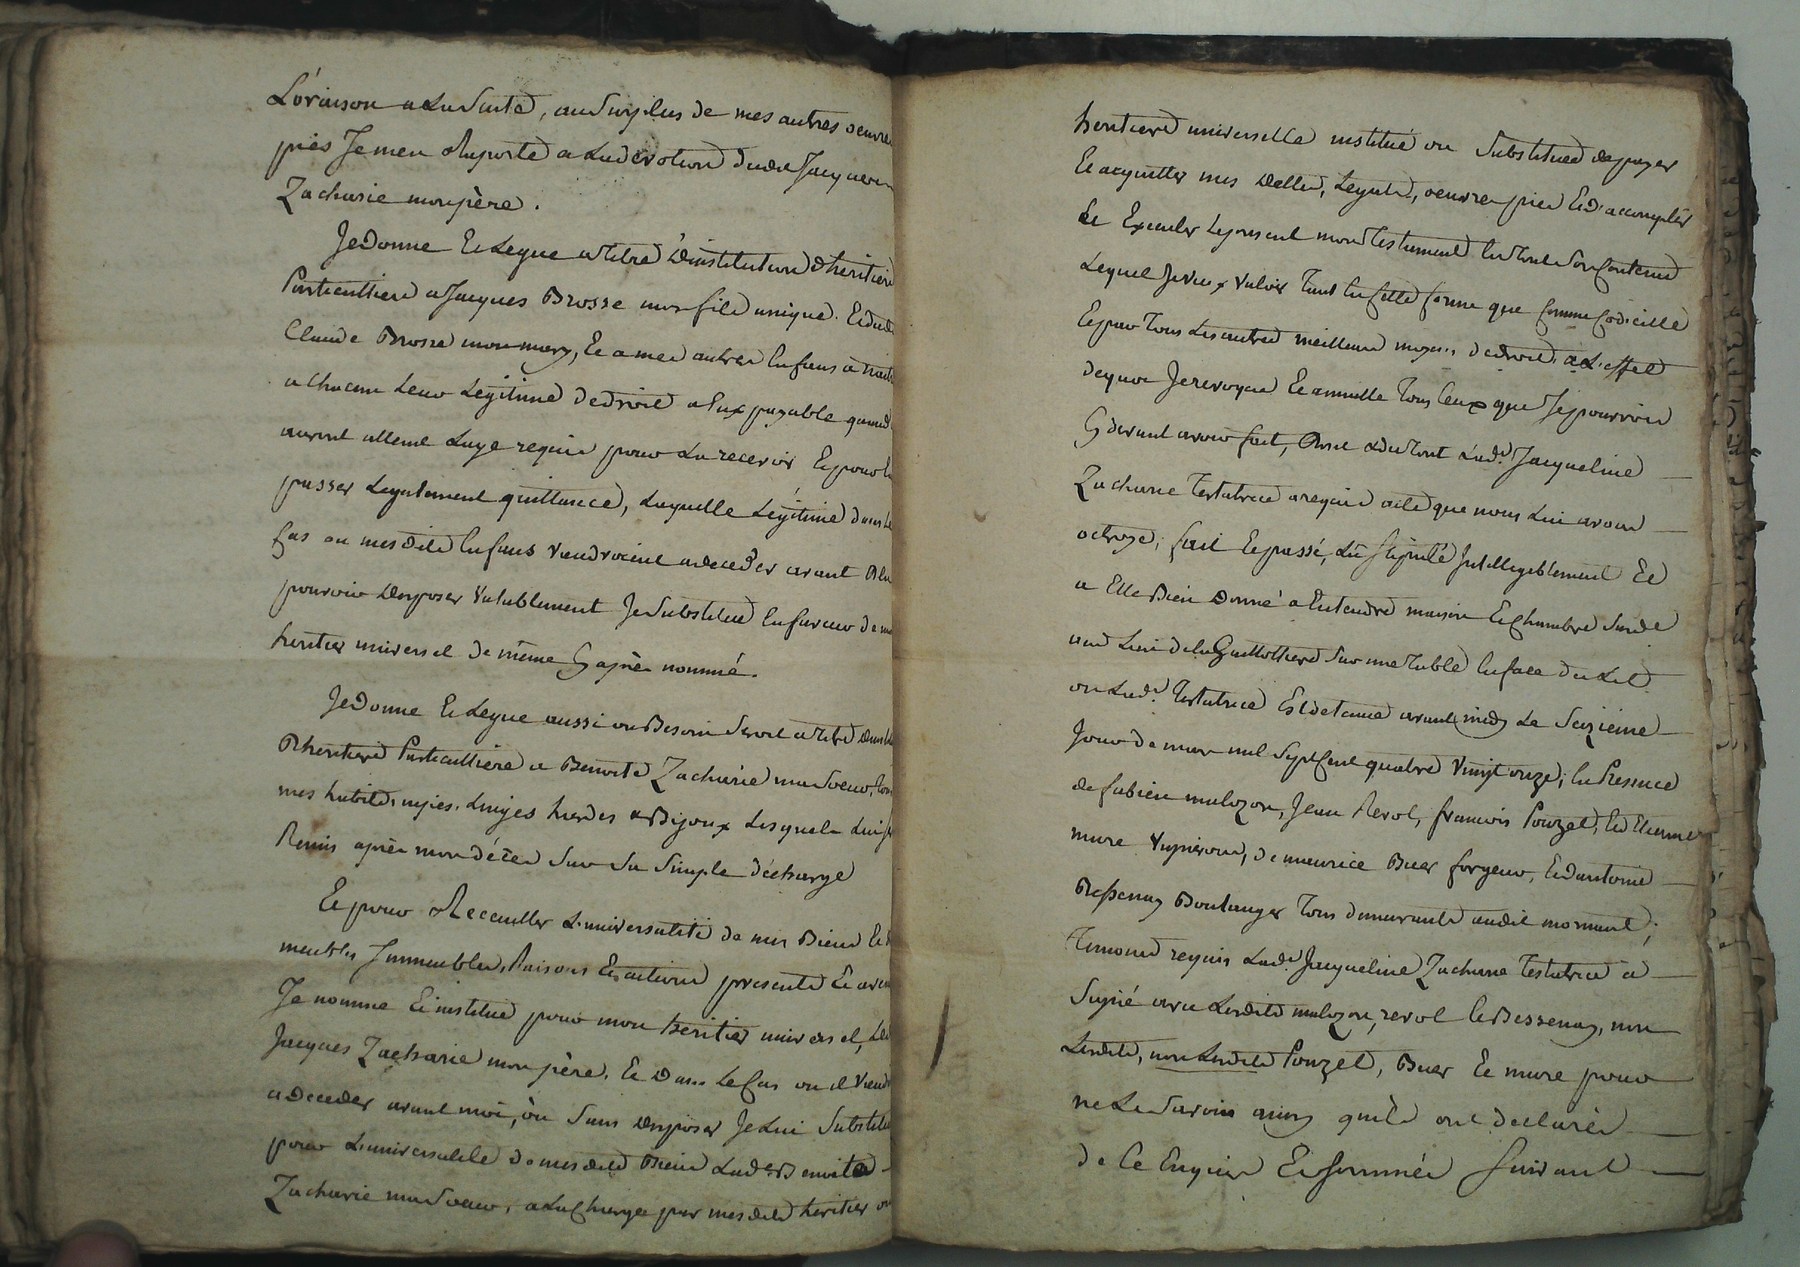 L'oraison a La Suitte, au Surplus de mes autres oeuvre
pies Je men Raporte a La devotion dudit Jacques
Zacharie mon père.
Je Donne Et Legue a titre D'institution d'heritiere
Particulliere a Jacques Brosse mon fils unique. Et dudit
Claude Brosse mon mary, Et a mes autres Enfans a naitre
a Chacun Leur Légitime de droit a Eux payable quand
auront atteint L'age requis pour La recevoir Et pour En
passer Legalement quittance, Laquelle Légitime dans Le
Cas ou mesdits Enfans viendroient a deceder avant
pouvoir Disposer valablement Je Substitue En faveur de mon
heritier universel de même Cy après nommé.
Je Donne Et Legue aussi ou Besoin Seroit a titre
D'heritiere Particulliere a Benoite Zacharie ma Soeur, tous
mes habits, nipes, Linges hardes & Bijoux Lesquels Lui
Remis après mon décès Sur Sa Simple décharge
Et pour Recueillir L'universalité de mes Biens Et
meubles Immeubles, Raisons Et actions presents Et avenir
Je nomme Et institue pour mon heritier universel, Led
Jacques Zacharie mon père, Et Dans Le Cas ou il viendroit
a deceder avant moi, ou Sans Disposer Je Lui Substitue
pour L'universalité de mesdits Biens Ladte Benoite
Zacharie ma Soeur, a La Charge par mesdits heritier ou
heritiere universelle institué ou Substituée de payer
Et acquitter mes Dettes, Legats, oeuvre pies Et d'accomplir
Et Executer Le present mon testament En tout Son Contenu
Lequel Je veux valoir Tant En Cette forme que Comme Codicille
Et par Tous Les autres meilleurs moyens de droit, a L'effet
de quoi Je revoque Et annulle Tous Ceux que Je pourrois
Cy devant avoir fait, Dont & du tout Lade. Jacqueline
Zacharie Testatrice a requis acte que nous Lui avons
octroyé, fait Et passé, Lû Stipulé Intelligiblement Et
a Elle Bien Donné a Entendre maison Et Chambre Sise
aud Lieu de la Guillottiere Sur une Table En face du Lit
ou Lade. Testatrice Est detenue avant midy Le Seizieme
Jour de mars mil Sept Cent quatre Vingt onze, En Presence
de fabien malozon, Jean Revol, francois Pouzet, Et Etienne
mure vigneron, de maurice Buer forgeur, Et d'antoine
Bessenay Boulanger Tous demeurants audit mornant,
Temoins requis Lade. Jacqueline Zacharie Testatrice a
Signé avec Lesdits malozon, revol Et Bessenay, non
Lesdits, non Lesdits Pouzet, Buer Et mure pour
ne Le Savoir ainsy qu'ils ont declarés
de Ce Enquis Et Sommés Suivant